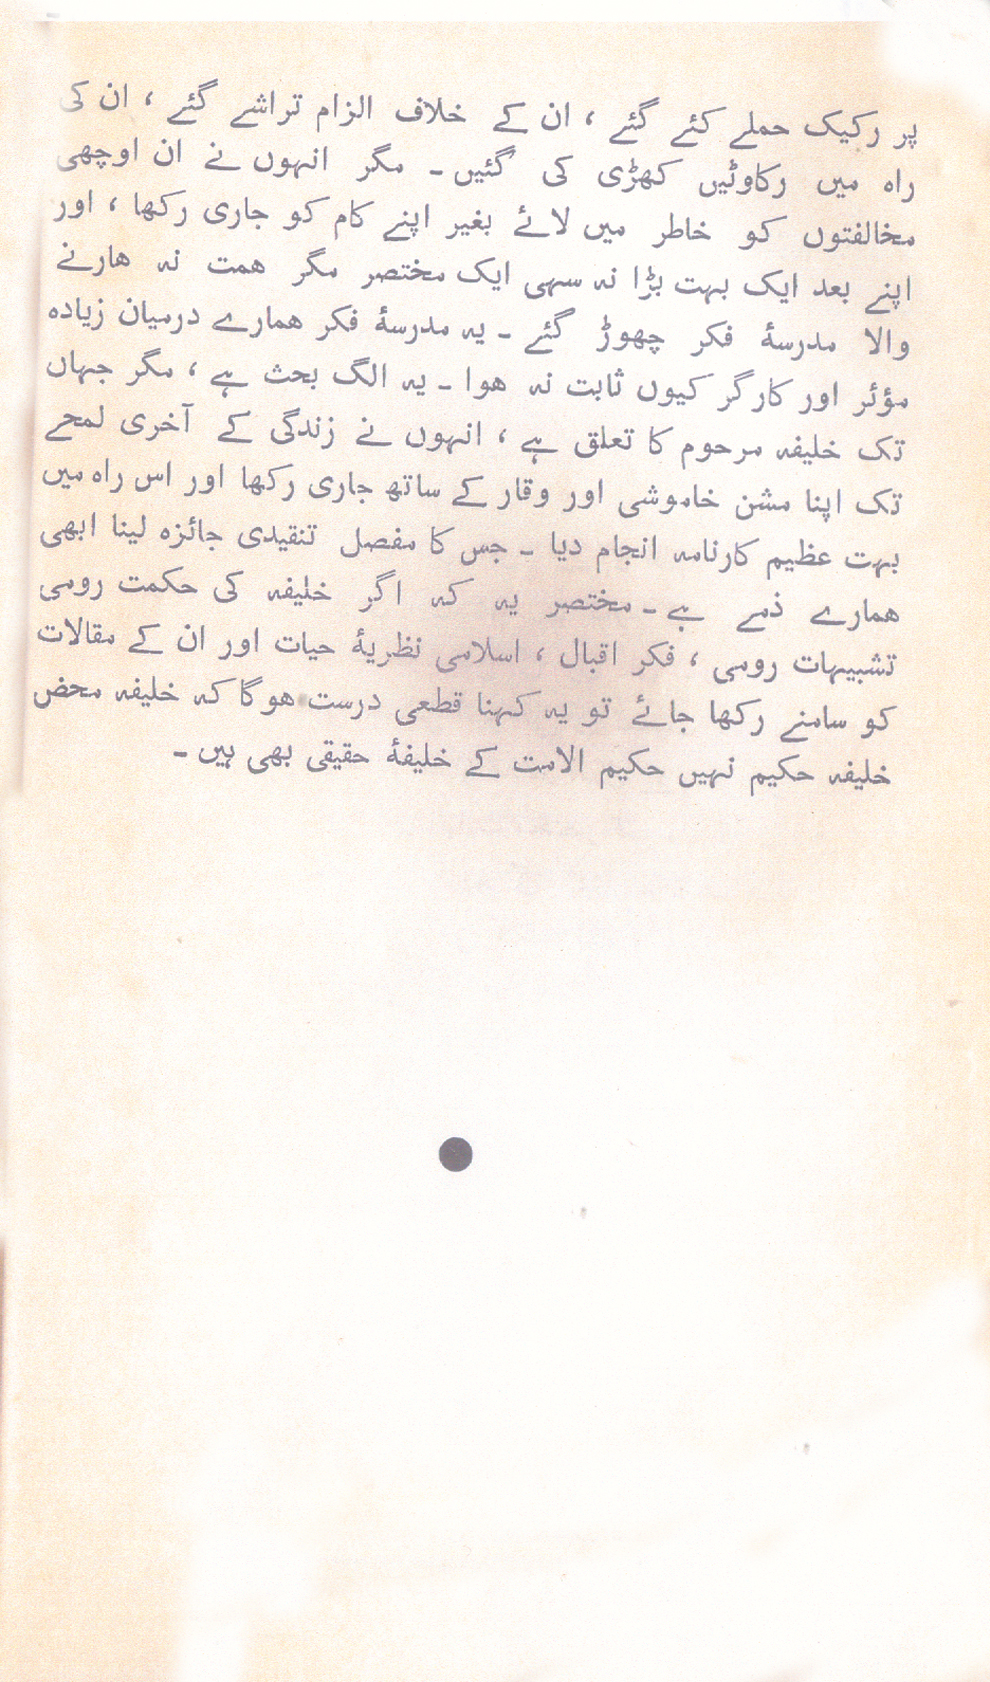 پر رکیک حملے کئے گئے ، ان کے خلاف الزام تراشے گئے ، ان کی
راہ میں رکاوٹیں کھڑی کی گئیں ۔ مگر انہوں نے ان اوچھی
مخالفتوں کو خاطر میں لائے بغیر اپنے کام کو جاری رکھا ، اور
اپنے بعد ایک بہت بڑا نہ سہی ایک مختصر مگر ھمت نہ ھارنے
والا مدرسۂ فکر چھوڑ گئے ۔ یہ مدرسۂ فکر ھمارے درمیان زیادہ
مؤثر اور کارگر کیوں ثابت نہ ھوا ۔ یہ الگ بحث ہے ، مگر جہاں
تک خلیفہ مرحوم کا تعلق ہے ، انہوں نے زندگی کے آخری لمحے
تک اپنا مشن خاموشی اور وقار کے ساتھ جاری رکھا اور اس راہ میں
بہت عظیم کارنامہ انجام دیا ۔ جس کا مفصل تنقیدی جائزہ لینا ابھی
ھمارے ذمے ہے ۔ مختصر یہ کہ اگر خلیفہ کی حکمت رومی
تشبیہات رومی ، فکر اقبال ، اسلامی نظریۂ حیات اور ان کے مقالات
کو سامنے رکھا جائے تو یہ کہنا قطعی درست ھوگا کہ خلیفہ محض
خلیفہ حکیم نہیں حکیم الامت کے خلیفۂ حقیقی بھی ہیں ۔